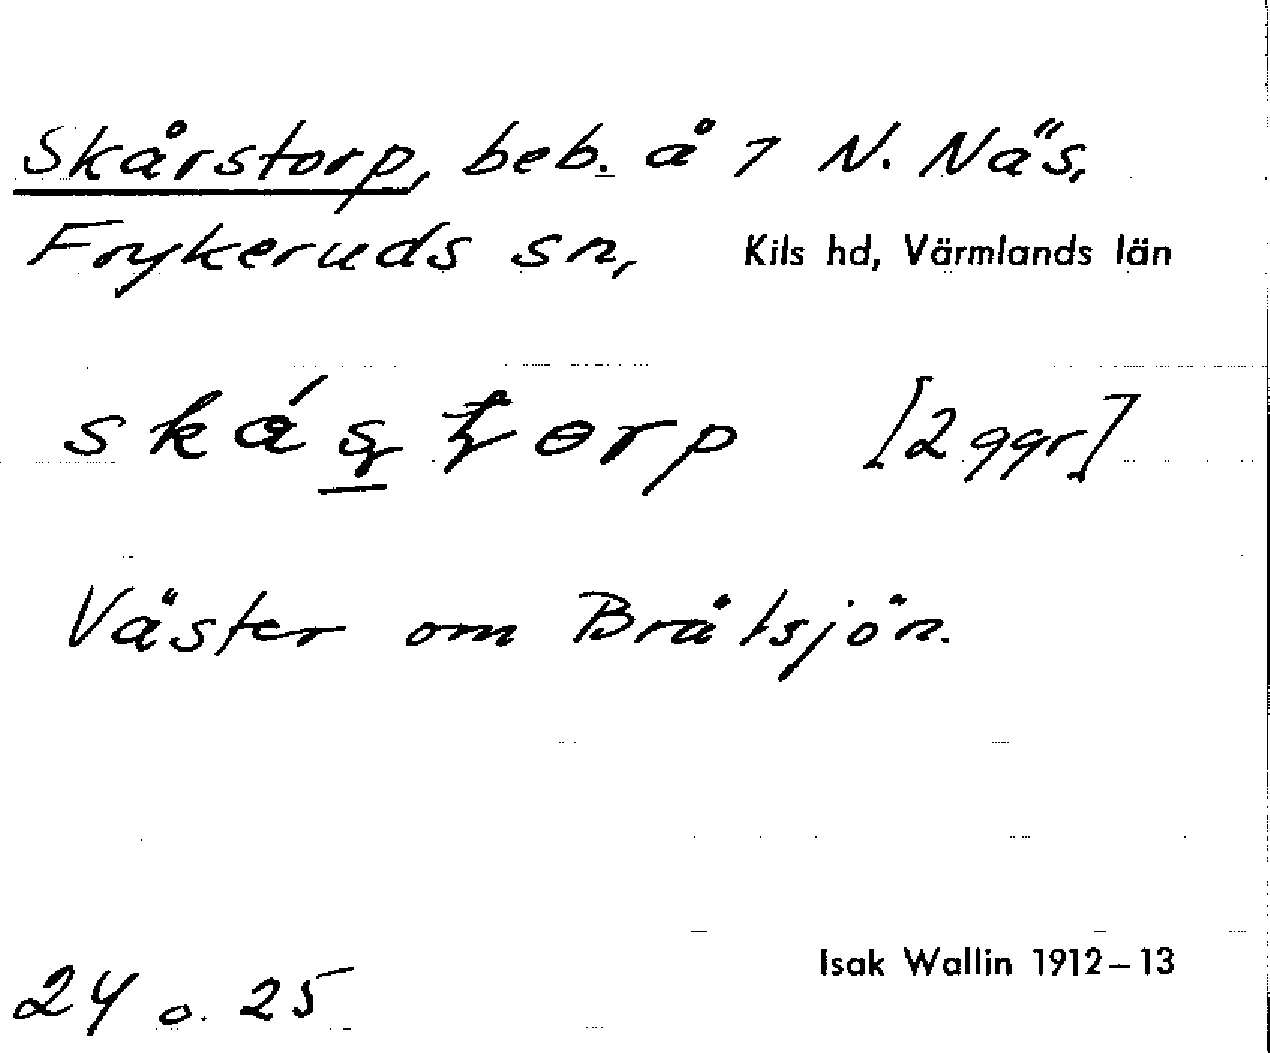 Skårstorp, beb. å 7 N. Näs,
Frykeruds sn, Kils hd, Värmlands län
[2 ggr]
Väster om Bråtsjön.
24 o. 25
Isak Wallin 1912–13